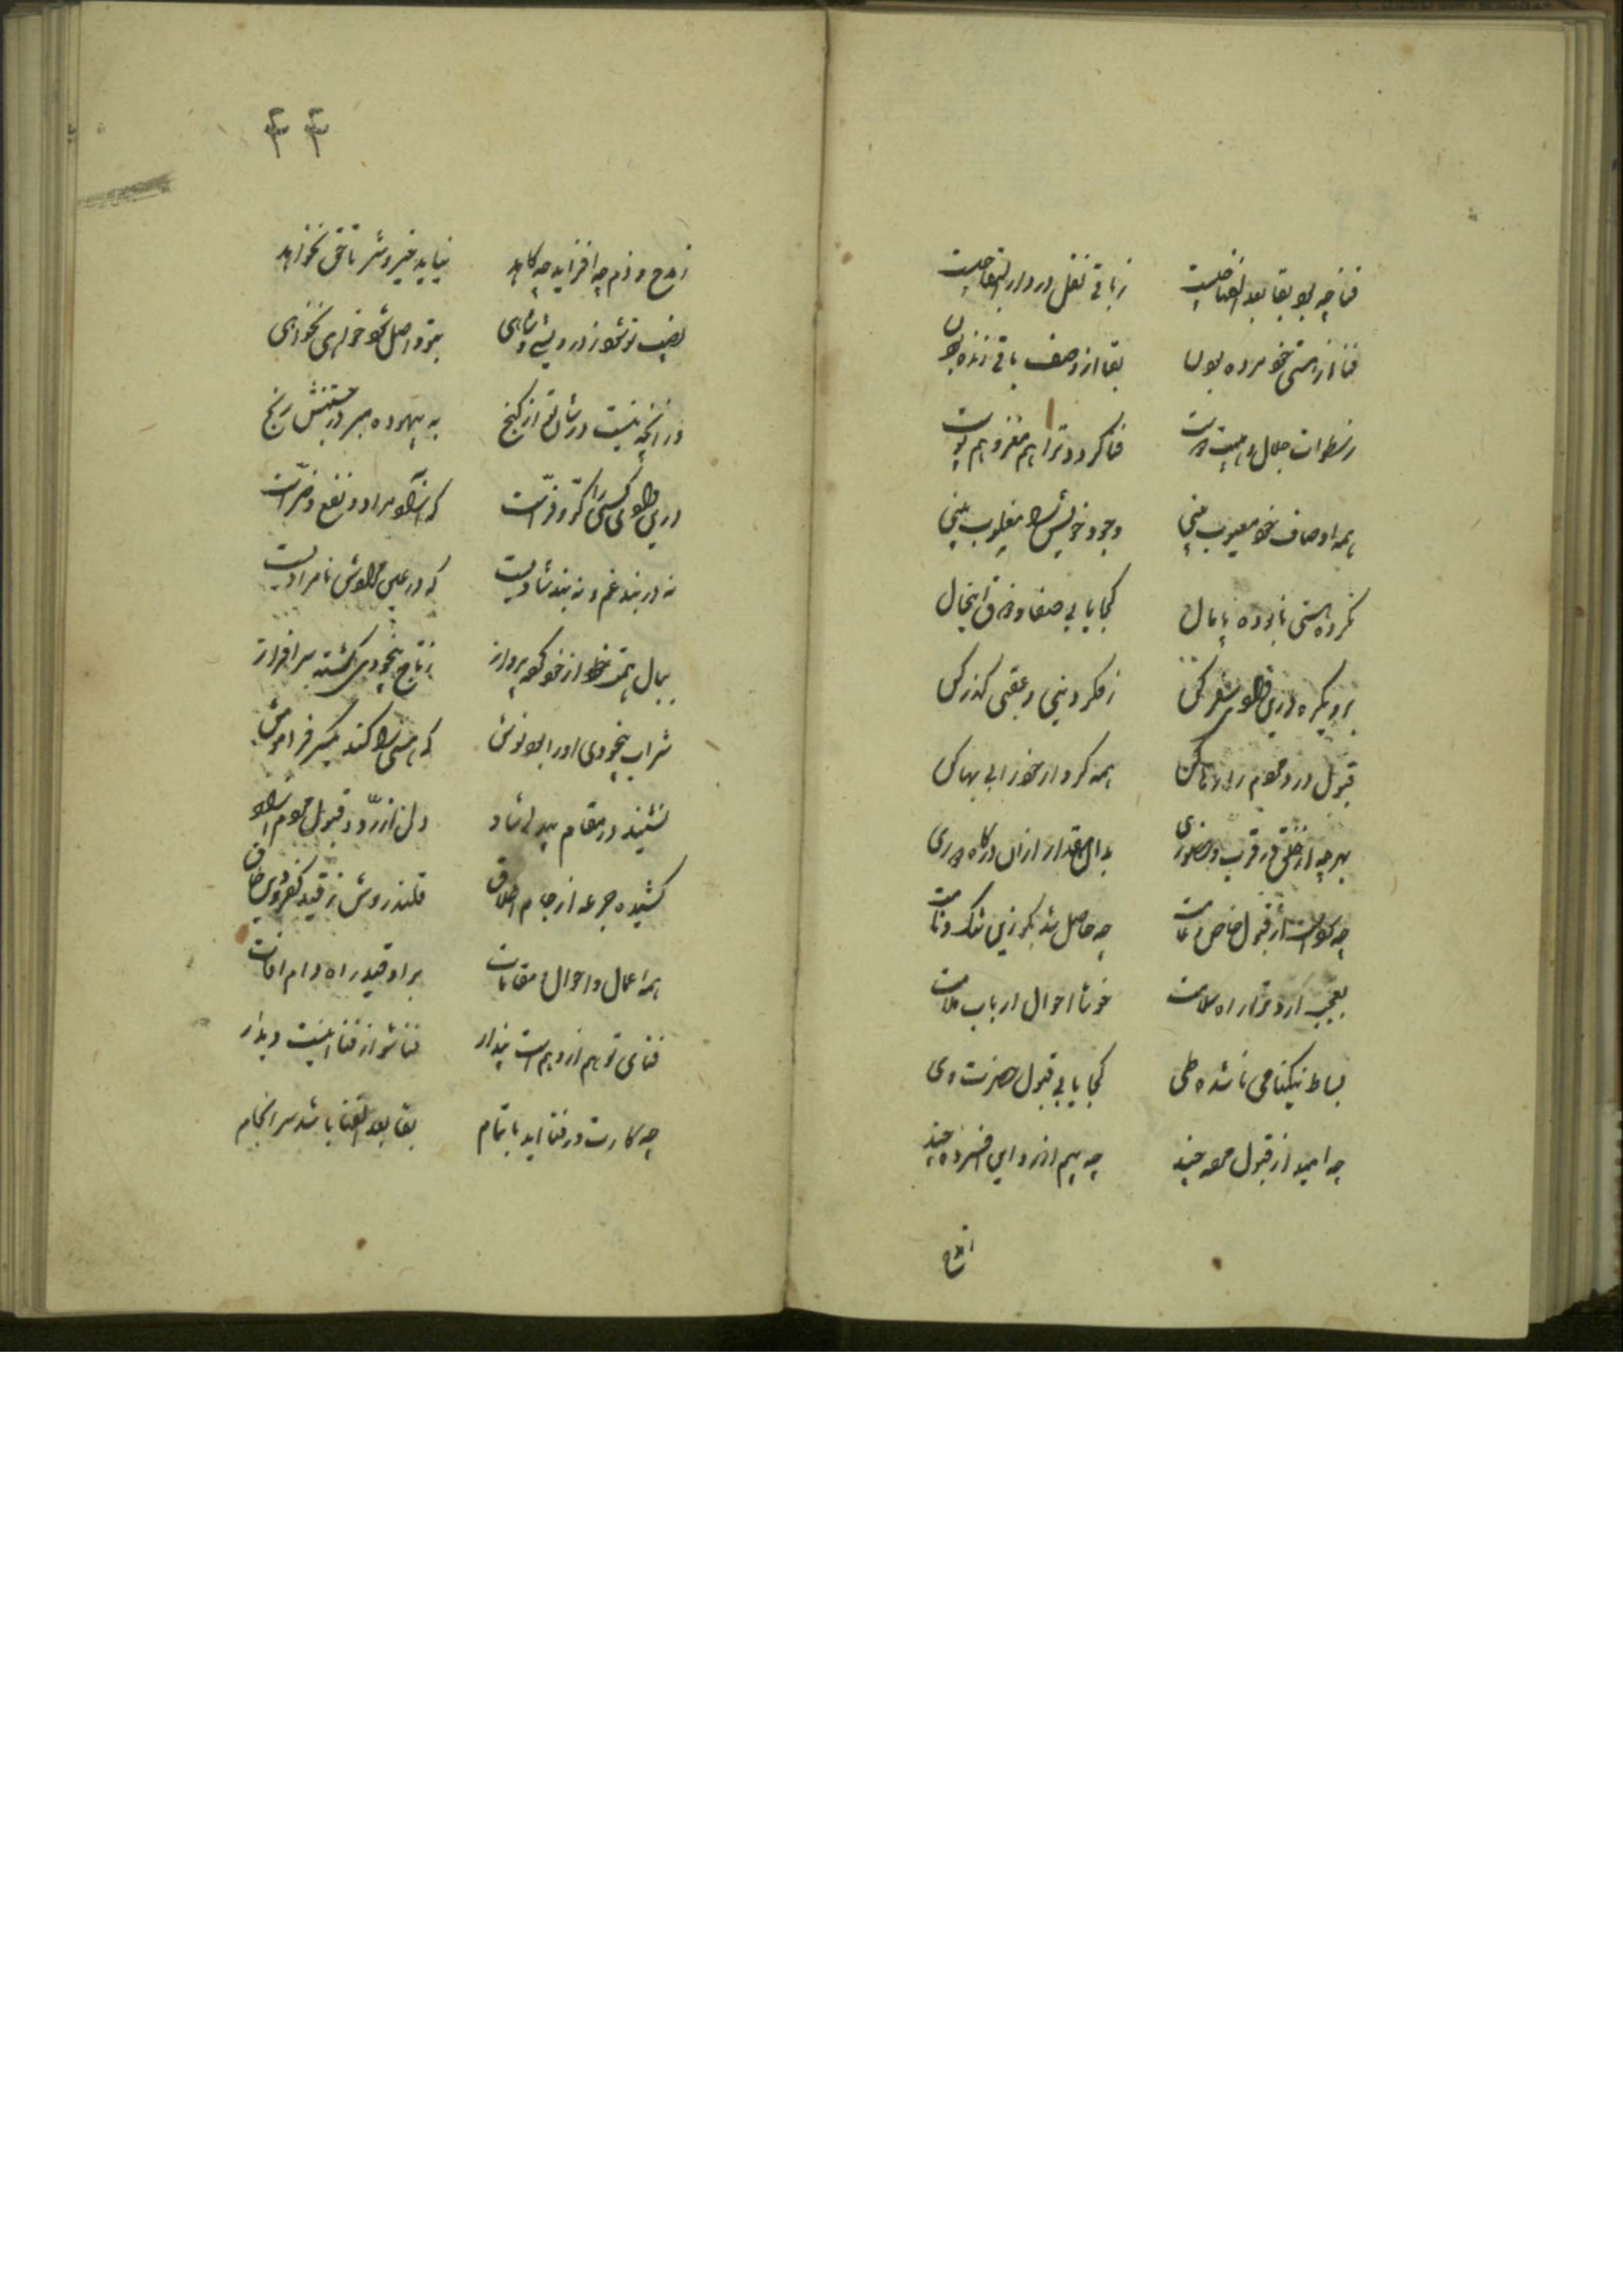 فنا چه بود بقا بعد الفنا چیست ز باقی نقل در دار البقا چیست
فنا از هستی خود مرده بودن بقا از وصف باقی زنده بودن
ز سطوات جلال و هیبت دوست فنا گردد ترا هم مغز و هم پوست
همه اوصاف خود معیوب بینی وجود خویش را مغلوب بینی
نکرده هستی نابوده پامال کجا یابی صفا و ذوق اینحال
برو یکره درین وادی سفر کن ز فکر دنیی و عقبی گذر کن
قبول و رد مردم را رها کن همه کردار خود را بی بها کن
بهرچه از خلق در قرب و حضوری بدان مقدار ازان درگاه دوری
چه سودست از قبول خاص و عامت چه حاصل شد بگو زین ننگ و نامت
بعجب آرد ترا راه سلامت خوشا احوال ارباب ملامت
بساط نیکنامی نا شده طی کجا یابی قبول حضرت وی
چه امید از قبول مرده چند چه بیم از رد این افسرده چند
ز مدح
۴۴
ز مدح و ذم چه افزاید چه کاهد نیاید خیر و شر تا حق نخواهد
نصیب تو نشود ز درویشی و شاهی بتو واصل شود خواهی نخواهی
در آنچه نیست در شان تو از گنج به بیهوده مبر در جستنش رنج
درین وادی کسی را کر و فرست که آزاد از مراد و نفع و ضرست
نه در بند غم و نه بند شادیست که در عین مرادش نامرادیست
ببال همت از خود کرده پرواز ز تاج بیخودی گشته سرافراز
شراب بیخودی او را بود نوش که هستی را کند یکسر فراموش
نشیند در مقام بیدلی شاد دلی از رد و قبول مردم آزاد
کشیده جرعه از جام اطلاق قلندروش ز قید کفر و دین طاق
همه اعمال و احوال و مقامات بر او قید راه و دام آفات
فنای تو هم از وهم است پندار فنا شو از فنا اینست دیدار
چه کارت در فنا آید باتمام بقا بعد الفنا باشد سرانجام